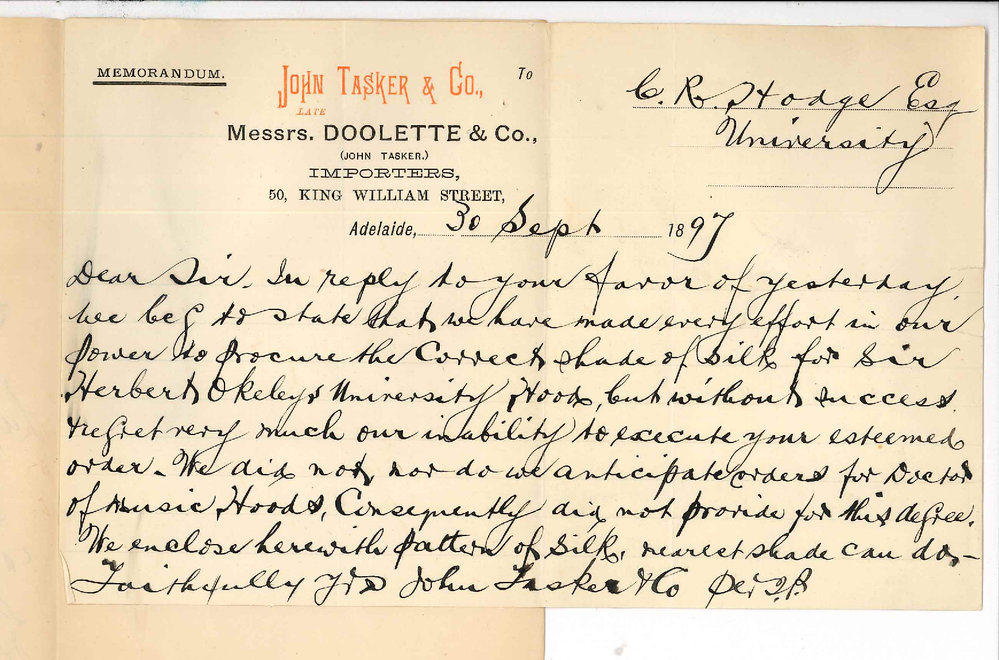 MEMORANDUM.
JOHN TASKER & CO.,
LATE
Messrs. DOOLETTE & Co.,
(JOHN TASKER.)
IMPORTERS,
50, KING WILLIAM STREET,
To
C. R. Hodge Esq
University
Adelaide, 30 Sept 1897
Dear Sir. In reply to your favor of yesterday,
wee beg to state that we have made every effort in our
power to procure the Correct shade of silk for Sir
Herbert Okeleys University Hood, but without success.
& regret very much our inability to execute your esteemed
order - We did not, nor do we anticipate orders for Doctor
of Music Hoods, Consequently did not provide for this degree.
We enclose herewith pattern of Silk, nearest shade can do, -
Faithfully Yrs John Tasker & Co Per